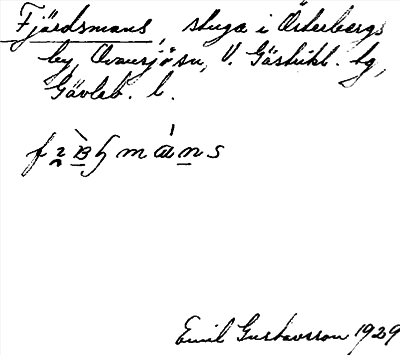 Fjärdsmans, stuga i Österbergs
by, Ovansjö sn, V. Gästrikl. tg,
Gävleb. l.
Emil Gustavsson 1929